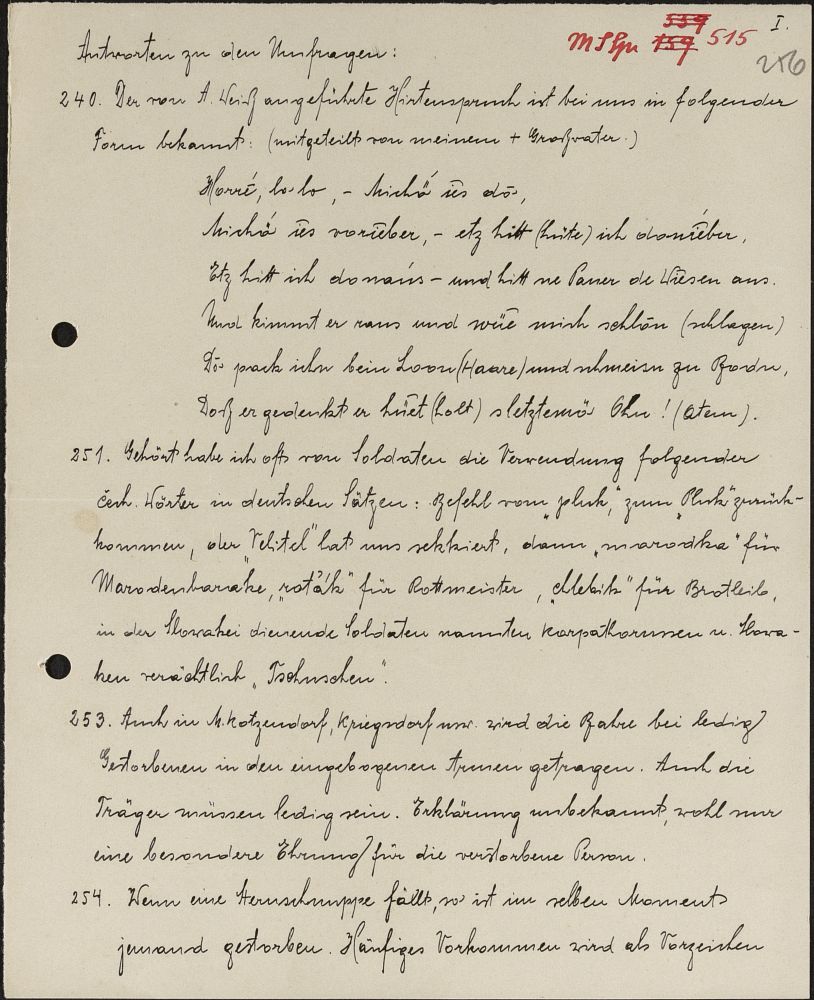 I.
559
MSSpr 159 515
256
Antworten zu den Umfragen:
240. Der von A. Weiß angeführte Hirtenspruch ist bei uns in folgender
Form bekannt: (mitgeteilt von meinem + Großvater.)
Horré, lo lo, - Michä iës dō,
Michä iës vorieber, - etz hitt (hüte) ich donieber,
Etz hitt ich donaus - und hitt ne Pauer de Wiesen aus.
Und kimmt er raus und wiie mich schlōn (schlagen)
Dō pack ichn bein Loon (Haare) und schmeisn zu Bodn,
Doß er gedenkt er hüet (holt) s letztemō Ohn! (Atem).
251. Gehört habe ich oft von Soldaten die Verwendung folgender
čech. Wörter in deutschen Sätzen: Befehl vom „pluk", zum „Pluk" zurück-
kommen, der „Velitel" hat uns sekkiert, dann „marodka" für
Marodenbarake, „roťák" für Rottmeister, „chlebik" für Brotleib,
in der Slowakei dienende Soldaten nannten Karpathorussen u. Slowa-
ken verächtlich „Tschuschen".
253. Auch in M. Kotzendorf, Kriegsdorf usw. wird die Bahre bei ledig
Gestorbenen in den eingebogenen Armen getragen. Auch die
Träger müssen ledig sein. Erklärung unbekannt, wohl nur
eine besondere Ehrung für die verstorbene Person.
254. Wenn eine Sternschnuppe fällt, so ist im selben Moment
jemand gestorben. Häufiges Vorkommen wird als Vorzeichen